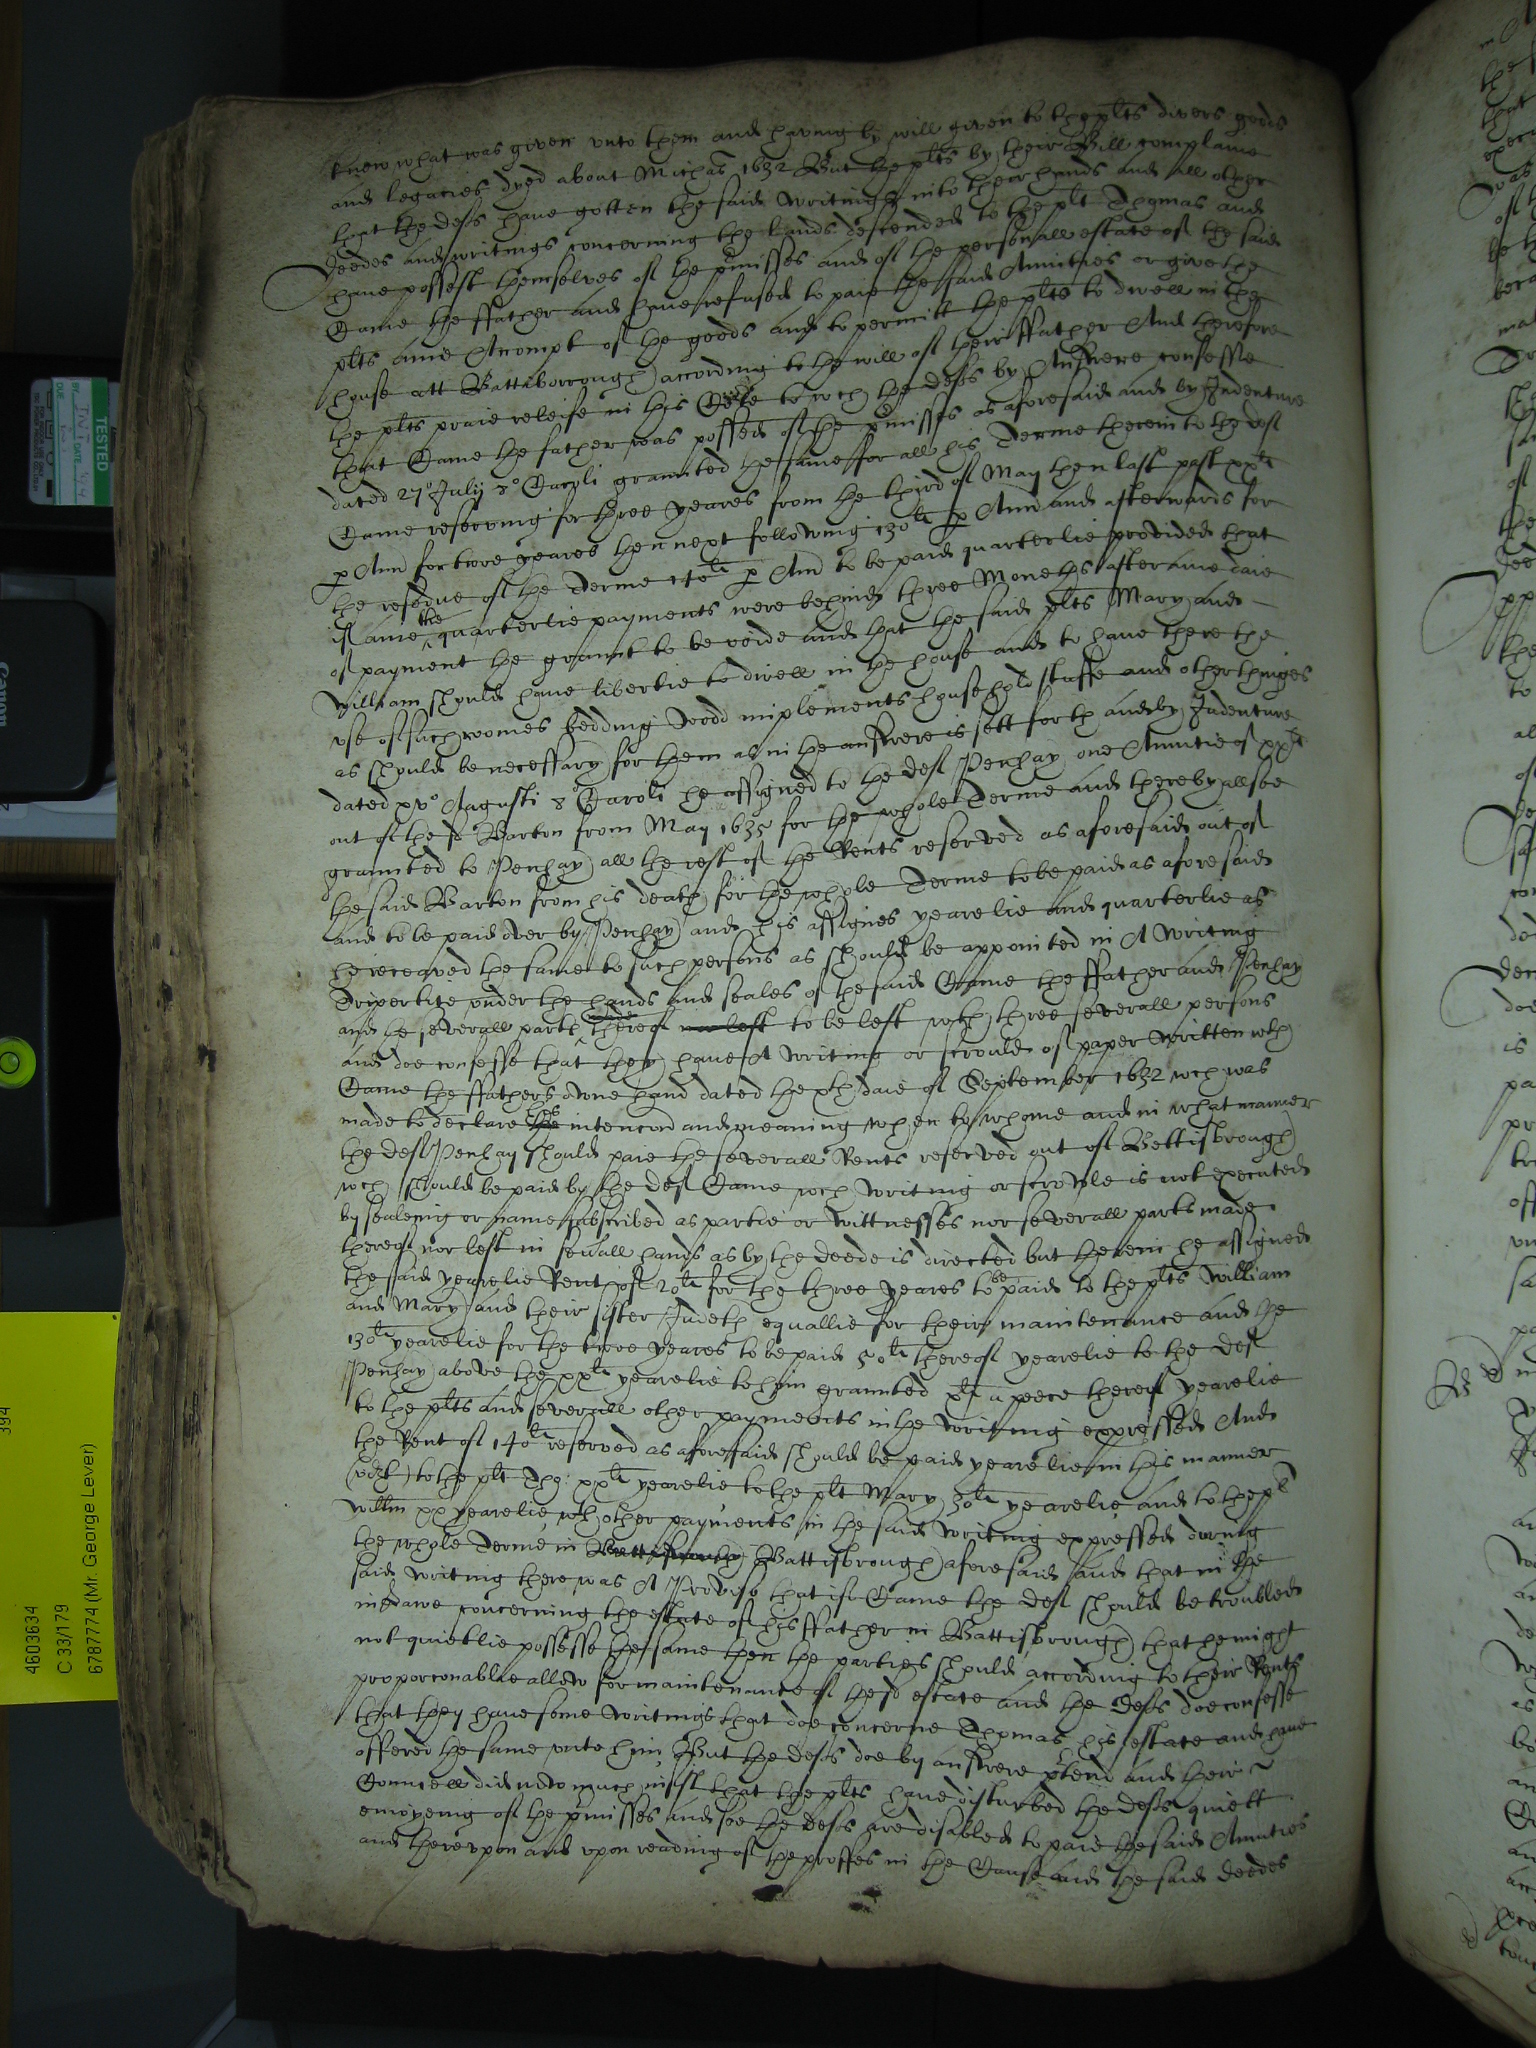 knew what was given unto them and having by will given to the plts divers goods
and legacies dyed about Michās 1632 But the plts by their Bill complaine
that the defts have gotten the said writings into their hands and all other
deedes and writings concerning the lands descended to the plt Thomas and
have possest themselves of the pmisses and of the personall estate of the said
Came the ffather and have refused to paie the said Anuities or give the
plts anie Accompt of the goods and to permitt the plts to dwell in the
house att Battaborrough according to the will of their ffather And therefore
the plts praie releife in this Co^rte to w^ch the defts by Answere confesse
that Came the father was possed of the pmisses as aforesaid and by Indenture
dated 27° Julij 8° Caroli graunted the same for all his terme therein to the deft
Came reserving for three yeares from the third of May then last past xx^li
p Ann for twoe yeares then next following 130^li p Ann and afterwards for
the residue of the terme 140^li p Ann to be paid quarterlie provided that
if anie the quarterlie payments were behind three Moneths after anie daie
of payment the graunt to be voide and that the said plts Mary and
William should have libertie to dwell in the house and to have there the
use of such roomes bedding wood implements household stuffe and other thinges
as should be necessary for them as in the answere is sett forth and by Indenture
dated xv° Augusti 8° Caroli he assigned to the deft Penhay one Anuitie of xx^li
out of the sd Barton from May 1635 for the whole Terme and thereby allsoe
graunted to Penhay all the rest of the Rents reserved as aforesaid out of
the said Barton from his death for the whole Terme to be paid as aforesaid
and to be paid over by Penhay and his assignes yearelie and quarterlie as
he receaved the same to such persons as should be appointed in A writing
Tripertite under the hands and seales of the said Came the ffather and Penhay
and the severall parts thereof made to be left wth three severall persons
and doe confesse that they have A writing or scrould of paper written wth
Came the ffathers owne hand dated the xth daie of September 1632 w^ch was
made to declare his intencon and meaning when to whome and in what manner
the deft Penhay should paie the severall Rents reserved out of Bettisbrough
w^ch should be paid by the deft Came w^ch writing or scrowle is not executed
by sealeing or name subscribed as partie or wittnesses nor severall parts made
thereof nor left in sev^rall hands as by the deede is directed but therein he assigned
the said yearelie Rent of 20^li for the three yeares to be paid to the plts William
and Mary and their sister Judeth equallie for their maintenance and the
130^li yearelie for the twoe yeares to be paid 50^li thereof yearelie to the deft
Penhay above the xx^li yearelie to him graunted x^li a peece thereof yearelie
to the plts and severall other payments in the writing expressed And
the Rent of 140^li reserved as aforesaid should be paid yearelie in this manner
(vizt) to the plt Tho: xx^li yearelie to the plt Mary 30^li yearelie and to the pl^t
Willm xx yearelie wth other payments in the said writing expressed during
the whole terme in Battisbrough aforesaid and that in the
said writing there was A Proviso that if Came the deft should be troubled
in Lawe concerning the estate of his ffather in Battisbrough that he might
not quietlie possesse the same then the parties should according to their Rents
proporconablie allow for maintenance of the sd estate and the Defts doe confesse
that they have some writings that doe concerne Thomas his estate and have
offered the same unto him But the defts doe by answere ptend and their
Councell did now much insist that the plts have disturbed the defts quiett
enioyeing of the pmisses and soe the defts are disabled to paie the said Anuities
and thereupon and upon reading of the prooffes in the Cause and the said deedes
4603634
C 33/179
6787774 (Mr. George Lever)
394
TESTED
Canon